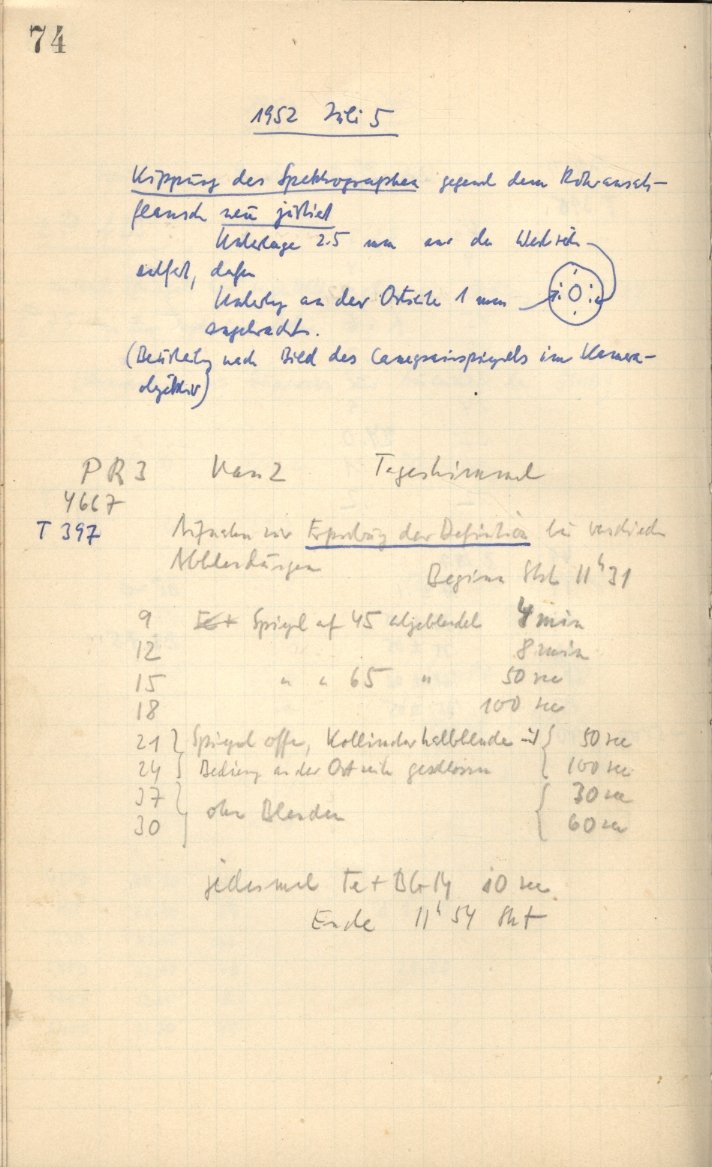 74
1952 Juli 5
Kippung des Spektrographen gegend dem Rohransatz-
flansch neu justiert
Unterlage 2.5 mm an der Westseite
entfert, dafür
Unterlag an der Ostseite 1 mm
angebracht.
(Beurteilung nach Bild des Cassegrainspiegels im Kamera-
objektiv)
PR3 Kam 2 Tageshimmel
4667
T 397
Aufnahmen zur Erprobung der Definition bei verschieden
Abblendungen
Beginn Sht 11h31
9 Spiegel auf 45 abgeblendet 4 min
12 8 min
15 " " 65 " 50 sec
18 100 sec
21 } Spiegel offen, Kollimatorhalbblende mit { 50 sec
24 } Bedienung an der Ostseite geschlossen { 100 sec
37 } ohne Blenden { 30 sec
30 60 sec
jedesmal Te + 10 sec
Ende 11h 54 Sht